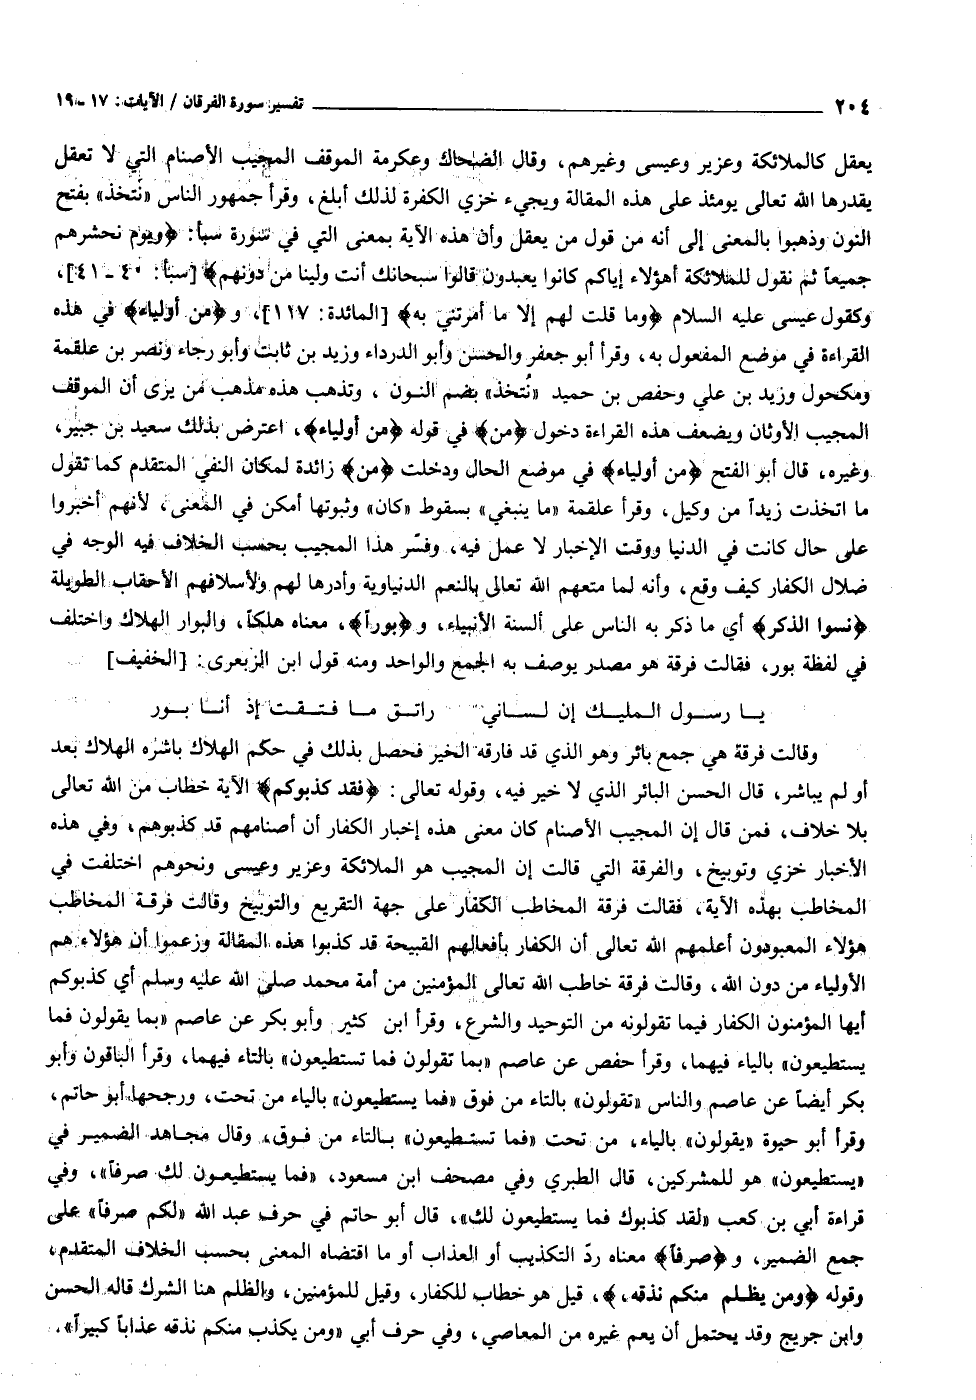 ٢٠٤ ــــــــــ تفسير سورة الفرقان / الآيات: ١٧ ـ ١٩
يعقل كالملائكة وعزير وعيسى وغيرهم، وقال الضحاك وعكرمة الموقف المجيب الأصنام التي لا تعقل
يقدرها الله تعالى يومئذ على هذه المقالة ويجيء خزي الكفرة لذلك أبلغ، وقرأ جمهور الناس «نَتخذ» بفتح
النون وذهبوا بالمعنى إلى أنه من قول من يعقل وأن هذه الآية بمعنى التي في سورة سبأ: ﴿ويوم نحشرهم
جميعاً ثم نقول للملائكة أهؤلاء إياكم كانوا يعبدون قالوا سبحانك أنت ولينا من دونهم﴾ [سبأ: ٤٠ ـ ٤١]،
وكقول عيسى عليه السلام ﴿وما قلت لهم إلا ما أمرتني به﴾ [المائدة: ١١٧]، و﴿من أولياء﴾ في هذه
القراءة في موضع المفعول به، وقرأ أبو جعفر والحسن وأبو الدرداء وزيد بن ثابت وأبو رجاء ونصر بن علقمة
ومكحول وزيد بن علي وحفص بن حميد «نُتخذ» بضم النون، وتذهب هذه مذهب من يرى أن الموقف
المجيب الأوثان ويضعف هذه القراءة دخول ﴿من﴾ في قوله ﴿من أولياء﴾، اعترض بذلك سعيد بن جبير،
وغيره، قال أبو الفتح ﴿من أولياء﴾ في موضع الحال ودخلت ﴿من﴾ زائدة لمكان النفي المتقدم كما تقول
ما اتخذت زيداً من وكيل، وقرأ علقمة «ما ينبغي» بسقوط «كان» وثبوتها أمكن في المعنى، لأنهم أخبروا
على حال كانت في الدنيا ووقت الإخبار لا عمل فيه، وفسّر هذا المجيب بحسب الخلاف فيه الوجه في
ضلال الكفار كيف وقع، وأنه لما متعهم الله تعالى بالنعم الدنياوية وأدرها لهم ولأسلافهم الأحقاب الطويلة
﴿نسوا الذكر﴾ أي ما ذكر به الناس على ألسنة الأنبياء، و﴿بوراً﴾، معناه هلكاً، والبوار الهلاك واختلف
في لفظة بور، فقالت فرقة هو مصدر يوصف به الجمع والواحد ومنه قول ابن الزبعرى: [الخفيف]
يا رسول المليك إن لساني راتق ما فتقت إذ أنا بور
وقالت فرقة هي جمع بائر وهو الذي قد فارقه الخير فحصل بذلك في حكم الهلاك باشره الهلاك بعد
أو لم يباشر، قال الحسن البائر الذي لا خير فيه، وقوله تعالى: ﴿فقد كذبوكم﴾ الآية خطاب من الله تعالى
بلا خلاف، فمن قال إن المجيب الأصنام كان معنى هذه إخبار الكفار أن أصنامهم قد كذبوهم، وفي هذه
الأخبار خزي وتوبيخ، والفرقة التي قالت إن المجيب هو الملائكة وعزير وعيسى ونحوهم اختلفت في
المخاطب بهذه الآية، فقالت فرقة المخاطب الكفار على جهة التقريع والتوبيخ وقالت فرقة المخاطب
هؤلاء المعبودون أعلمهم الله تعالى أن الكفار بأفعالهم القبيحة قد كذبوا هذه المقالة وزعموا أن هؤلاء هم
الأولياء من دون الله، وقالت فرقة خاطب الله تعالى المؤمنين من أمة محمد صلى الله عليه وسلم أي كذبوكم
أيها المؤمنون الكفار فيما تقولونه من التوحيد والشرع، وقرأ ابن كثير وأبو بكر عن عاصم «بما يقولون فما
يستطيعون» بالياء فيهما، وقرأ حفص عن عاصم «بما تقولون فما تستطيعون» بالتاء فيهما، وقرأ الباقون وأبو
بكر أيضاً عن عاصم والناس «تقولون» بالتاء من فوق «فما يستطيعون» بالياء من تحت، ورجحها أبو حاتم،
وقرأ أبو حيوة «يقولون» بالياء، من تحت «فما تستطيعون» بالتاء من فوق، وقال مجاهد الضمير في
«يستطيعون» هو للمشركين، قال الطبري وفي مصحف ابن مسعود، «فما يستطيعون لك صرفاً»، وفي
قراءة أبي بن كعب «لقد كذبوك فما يستطيعون لك»، قال أبو حاتم في حرف عبد الله «لكم صرفاً» على
جمع الضمير، و﴿صرفاً﴾ معناه ردّ التكذيب أو العذاب أو ما اقتضاه المعنى بحسب الخلاف المتقدم،
وقوله ﴿ومن يظلم منكم نذقه،﴾، قيل هو خطاب للكفار، وقيل للمؤمنين، والظلم هنا الشرك قاله الحسن
وابن جريج وقد يحتمل أن يعم غيره من المعاصي، وفي حرف أبي «ومن يكذب منكم نذقه عذاباً كبيراً».